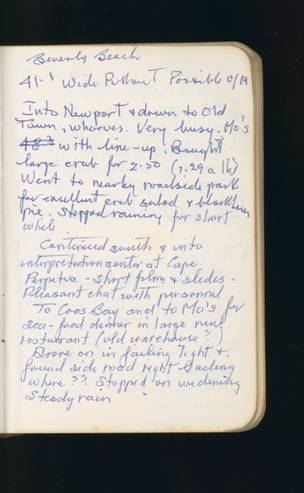 Beverly Beach
41.1 Wide Pullout Possible O/N
Into Newport & down to Old
Town, wharves. Very busy. Mo's
with line-up. Bought
large crab for 2.50 (1.29 a lb)
Went to nearby roadside park
for excellent crab salad & blackberry
pie. Stopped raining for short
while.
Continued south & into
interpretation center at Cape
Perpetua - short film & slides.
Pleasant chat with personnel
To Coos Bay and to Mo's for
sea-food dinner in large new
restaurant (old warehouse?)
Drove on in failing light &
found side road right leading
where?? Stopped on widening
Steady rain